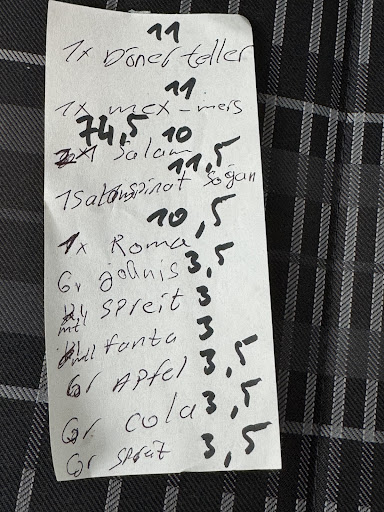 11
1x Döner teller
11
1x mex-meis
74,5 10
1 Salam
11,5
1 Salam spinat Soğan
10,5
1x Roma
Gr johnis 3,5
mtl spreit 3
mtl fanta 3
Gr Apfel 3,5
Gr cola 3,5
Gr sprat 3,5